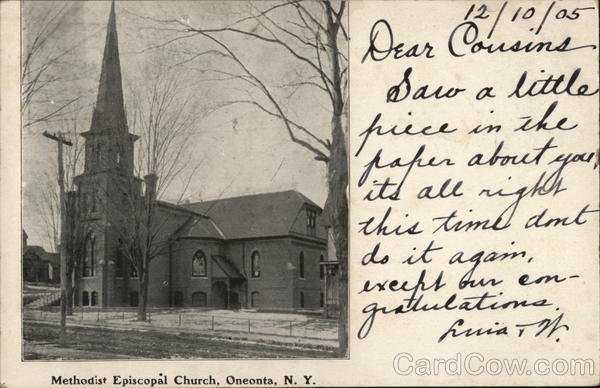 12/10/05
Dear Cousins
Saw a little
piece in the
paper about you,
its all right
this time dont
do it again,
except our con-
gratulations.
W.
Methodist Episcopal Church, Oneonta, N. Y.
CardCow.com